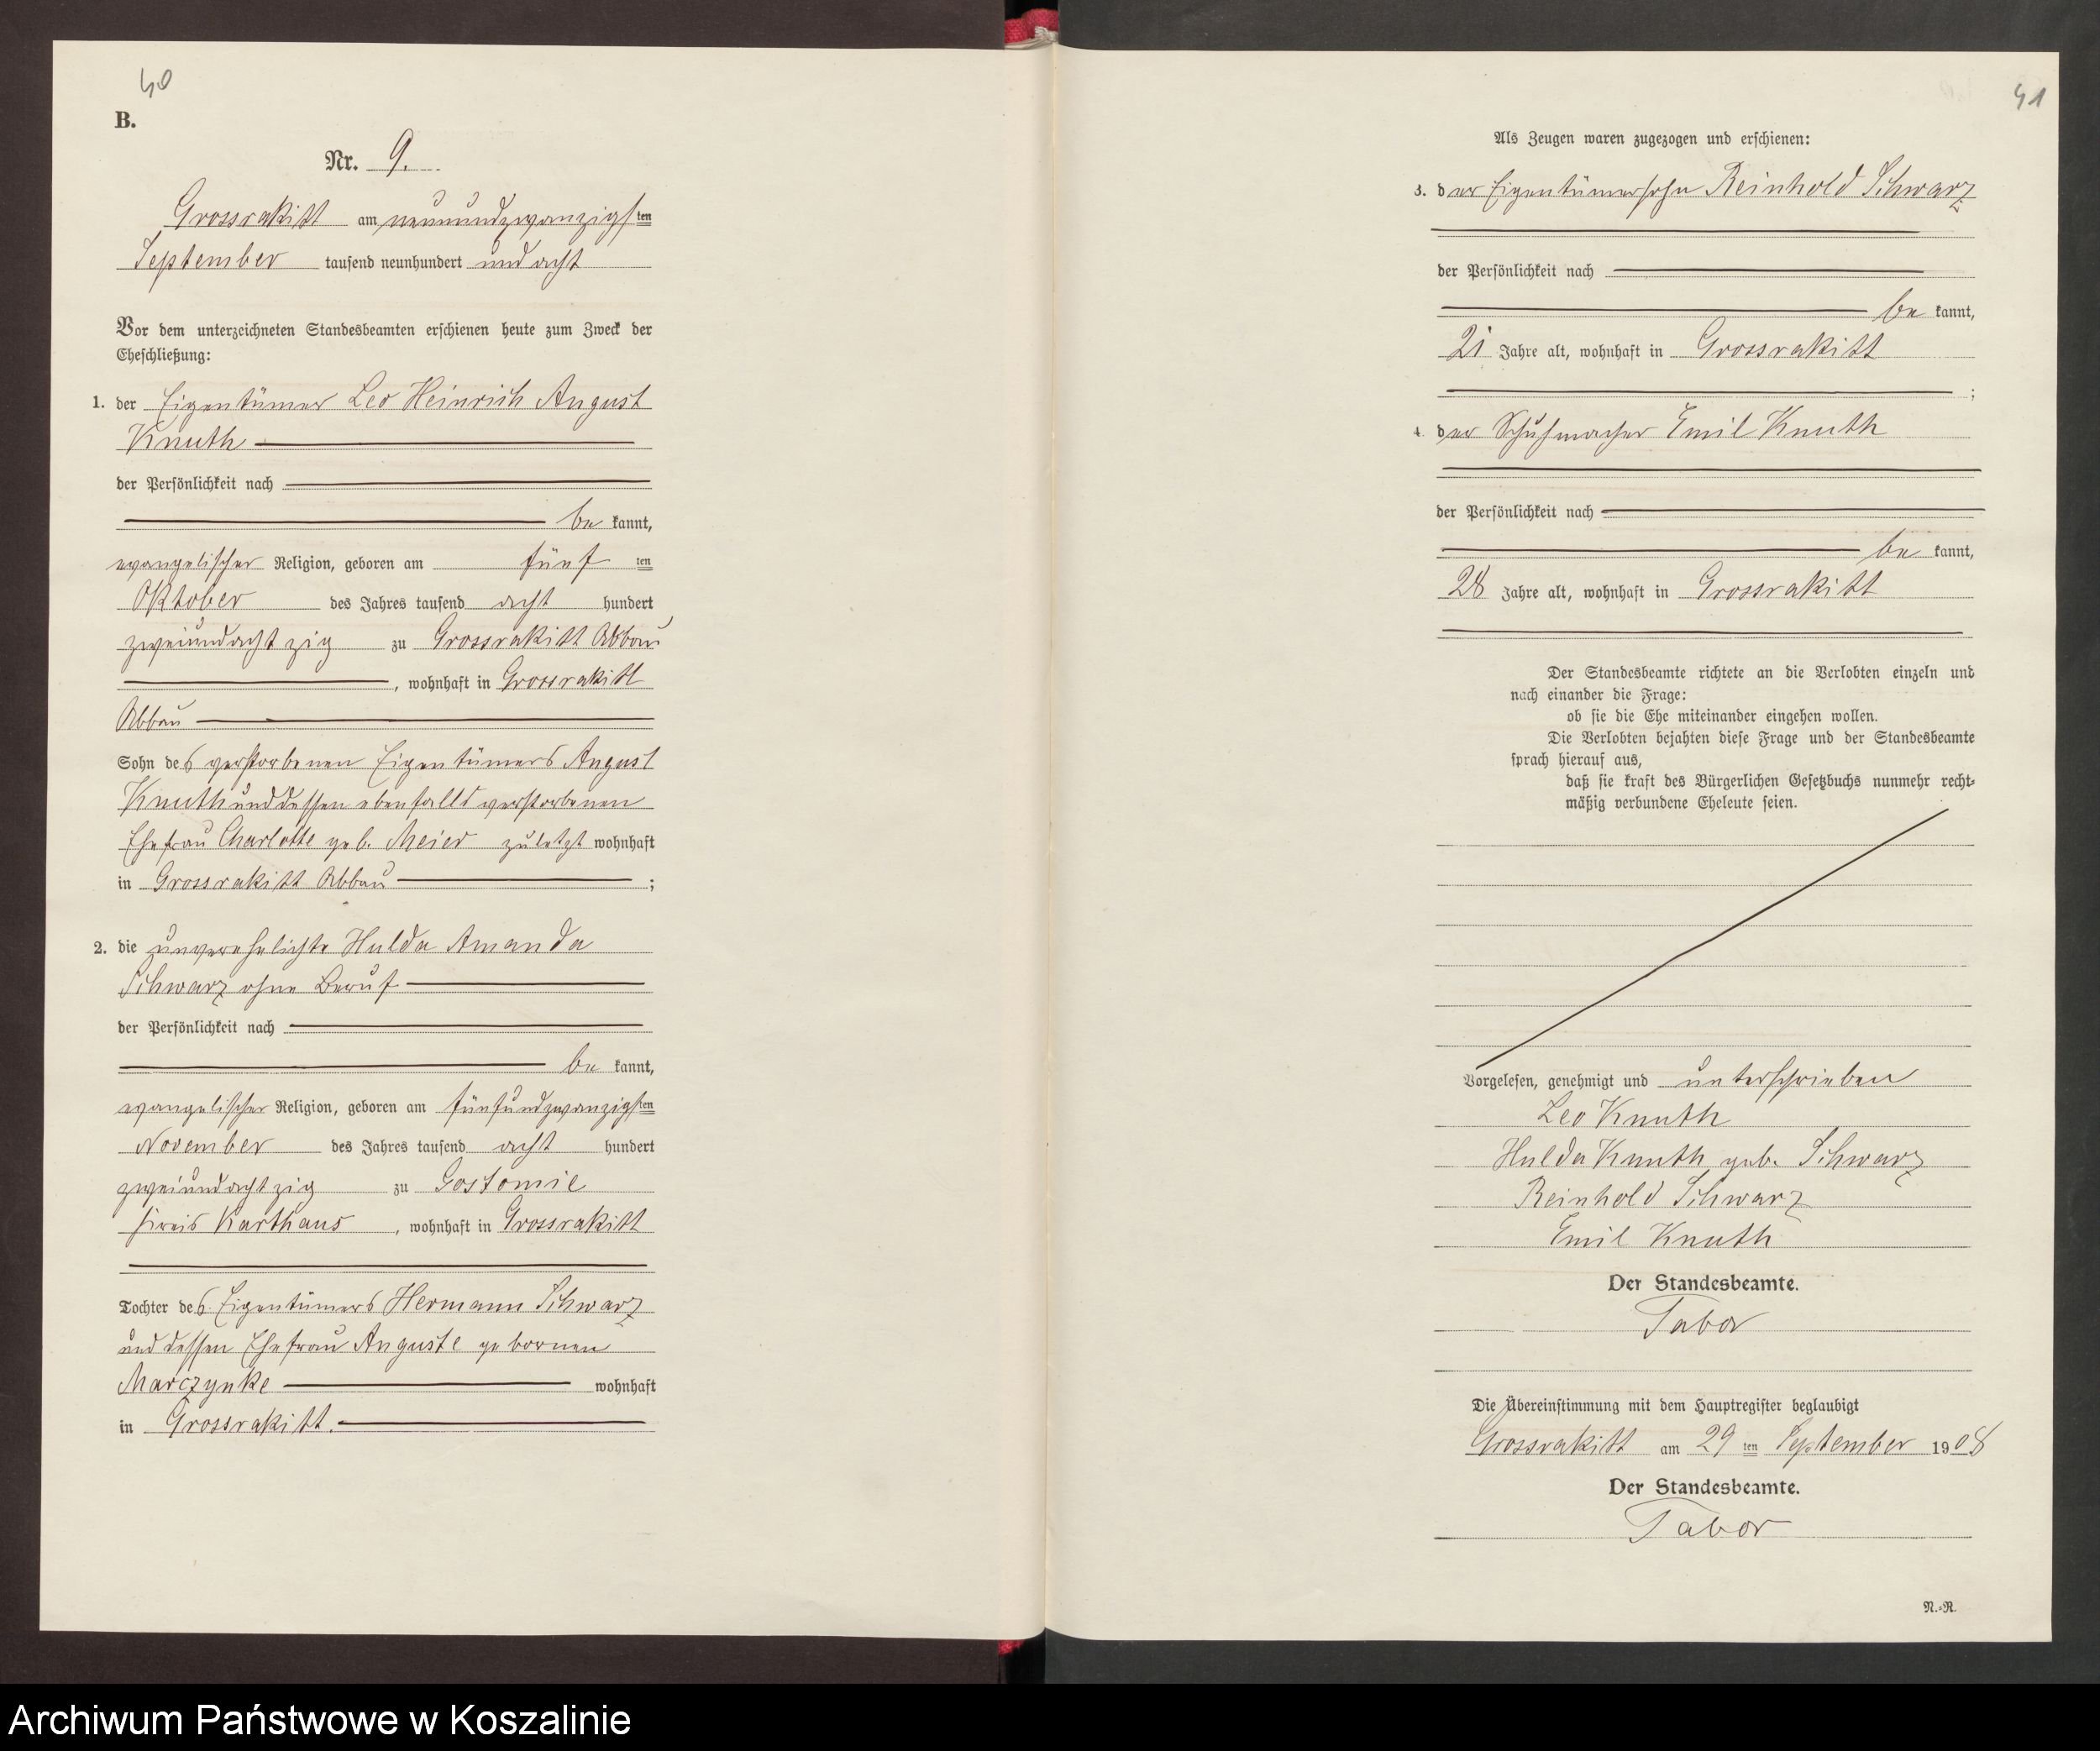 40
B.
Nr. 9.
Grossrakitt am neunundzwanzigsten
September tausend neunhundert und acht
Vor dem unterzeichneten Standesbeamten erschienen heute zum Zweck der
Eheschließung:
1. der Eigentümer Leo Heinrich August
Knuth
der Persönlichkeit nach
be kannt,
evangelischer Religion, geboren am fünf ten
Oktober des Jahres tausend acht hundert
zweiundachtzig zu Grossrakitt Abbau
, wohnhaft in Grossrakitt
Abbau
Sohn des verstorbenen Eigentümers August
Knuth und dessen ebenfalls verstorbenen
Ehefrau Charlotte geb. Meier zuletzt wohnhaft
in Grossrakitt Abbau ;
2. die unverehelichte Hulda Amanda
Schwarz ohne Beruf
der Persönlichkeit nach
be kannt,
evangelischer Religion, geboren am fünfundzwanzigsten
November des Jahres tausend acht hundert
zweiundachtzig zu Gostomie
Kreis Karthaus , wohnhaft in Grossrakitt
Tochter des Eigentümers Hermann Schwarz
und dessen Ehefrau Auguste gebornen
Marczynke wohnhaft
in Grossrakitt.
41
Als Zeugen waren zugezogen und erschienen:
3. der Eigentümersohn Reinhold Schwarz
der Persönlichkeit nach
be kannt,
21 Jahre alt, wohnhaft in Grossrakitt
;
4. der Schuhmacher Emil Knuth
der Persönlichkeit nach
be kannt,
28 Jahre alt, wohnhaft in Grossrakitt
Der Standesbeamte richtete an die Verlobten einzeln und
nach einander die Frage:
ob sie die Ehe miteinander eingehen wollen.
Die Verlobten bejahten diese Frage und der Standesbeamte
sprach hierauf aus,
daß sie kraft des Bürgerlichen Gesetzbuchs nunmehr recht-
mäßig verbundene Eheleute seien.
Vorgelesen, genehmigt und unterschrieben
Leo Knuth
Hulda Knuth geb. Schwarz
Reinhold Schwarz
Emil Knuth
Der Standesbeamte.
Tabor
Die Übereinstimmung mit dem Hauptregister beglaubigt
Grossrakitt am 29 ten September 1908
Der Standesbeamte.
Tabor
N.-R.
Archiwum Państwowe w Koszalinie